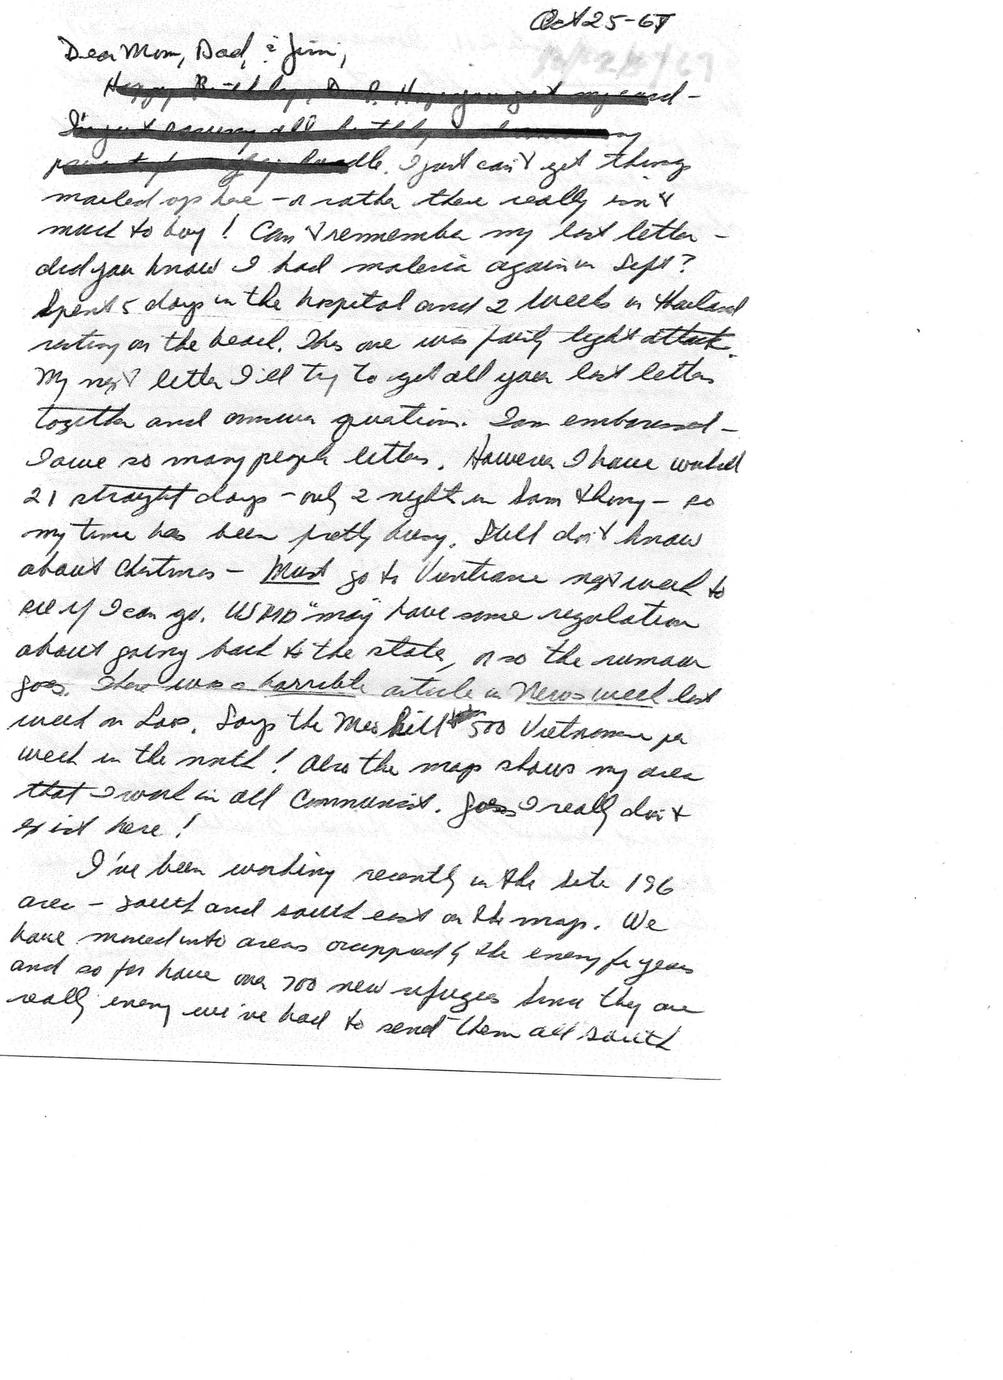 Oct 25-67
10/25/67
Dear Mom, Dad, & Jim,
Happy Birthday, Dad. Hope you got my card -
I'm just
dle. I just can't get things
mailed up here - or rather there really isn't
much to buy! Can't remember my last letter -
did you know I had malaria again in Sept?
Spent 5 days in the hospital and 2 weeks in Thailand
resting on the beach. This one was fairly light attack.
My next letter I'll try to get all your last letters
together and answer questions. I am embarassed -
I owe so many people letters. However I have worked
21 straight days - only 2 nights in Sam Thong - so
my time has been pretty busy. Still don't know
about Christmas - Must go to Vientiane next week to
see if I can go. USAID "may" have some regulation
about going back to the state, or so the rumour
goes. There was a horrible article in Newsweek last
week on Laos. Says the Meo kill 500 Vietnamese per
week in the north! Also the map shows my area
that I work in all Communist. Guess I really don't
exist here!
I've been working recently in the Site 196
area - south and south east on the map. We
have moved into areas occuppied by the enemy for years
and so far have over 700 new refugees. Since they are
really enemy we've had to send them all south